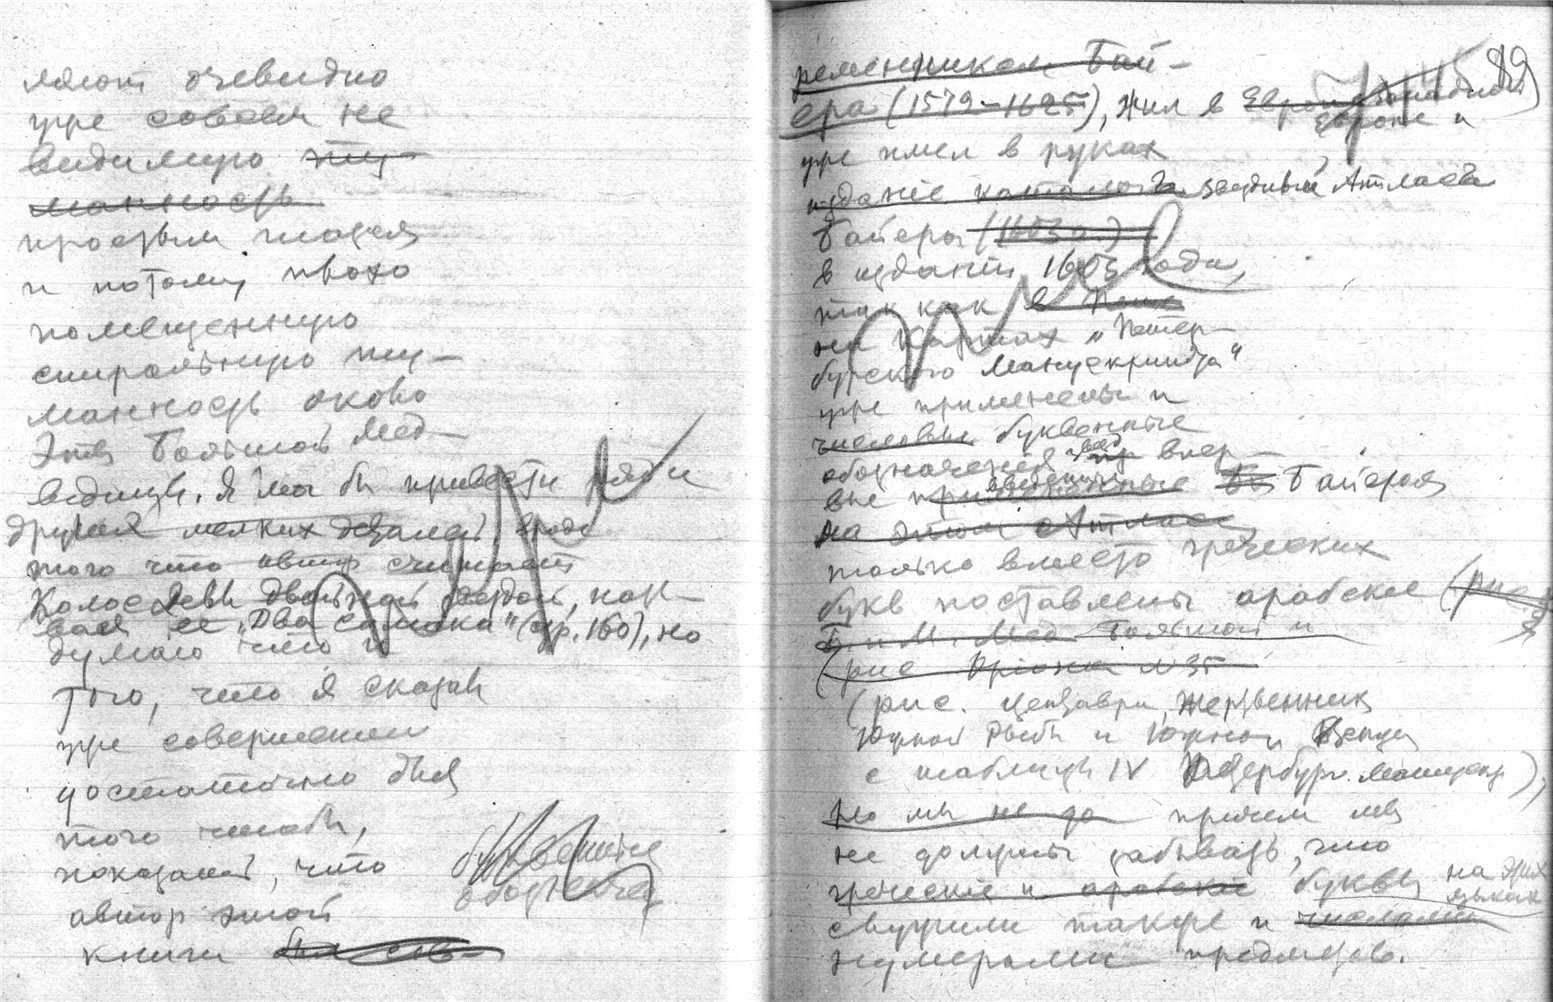 ляют очевидно
уже совсем не
видимую ту-
манность
простым глазом
и потому плохо
помещенную
спиральную ту-
манность около
Этой Большой Мед-
ведицы. Я мог бы привести ряды
других мелких деталей, вроде
того что автор считает
Колос Девы двойной звездой, наз-
вав ее „Два сомака" (стр. 160), но
думаю что и
того, что я сказал
уже совершенно
достаточно для
того чтобы,
показать, что
автор этой
книги
буквенные
обознач
ременником Бай-
ера (1572–1625), жил в Европе
Европе и
уже имел в руках
издание каталога звездный Атласа
Байера (1603 г.)
в издании 1603 года,
так как
на картах „Петер-
бургского Манускрипта"
уже применены и
числовые буквенные
обозначения впер-
вые введенные Байером
на этом Атласе
только вместо греческих
букв поставлены арабские (рис.
Б. и М. Мед. Большой и
(рис Ориона № 35
(рис. Центавра, Жертвенник
Южной Рыбы и Южного Венца
с таблицы IV Петербург. Манускр.),
Но мы не до причем мы
не должны забывать, что
греческие и арабские буквы на этих
языках
служили также и числами
нумерами предметов.
89